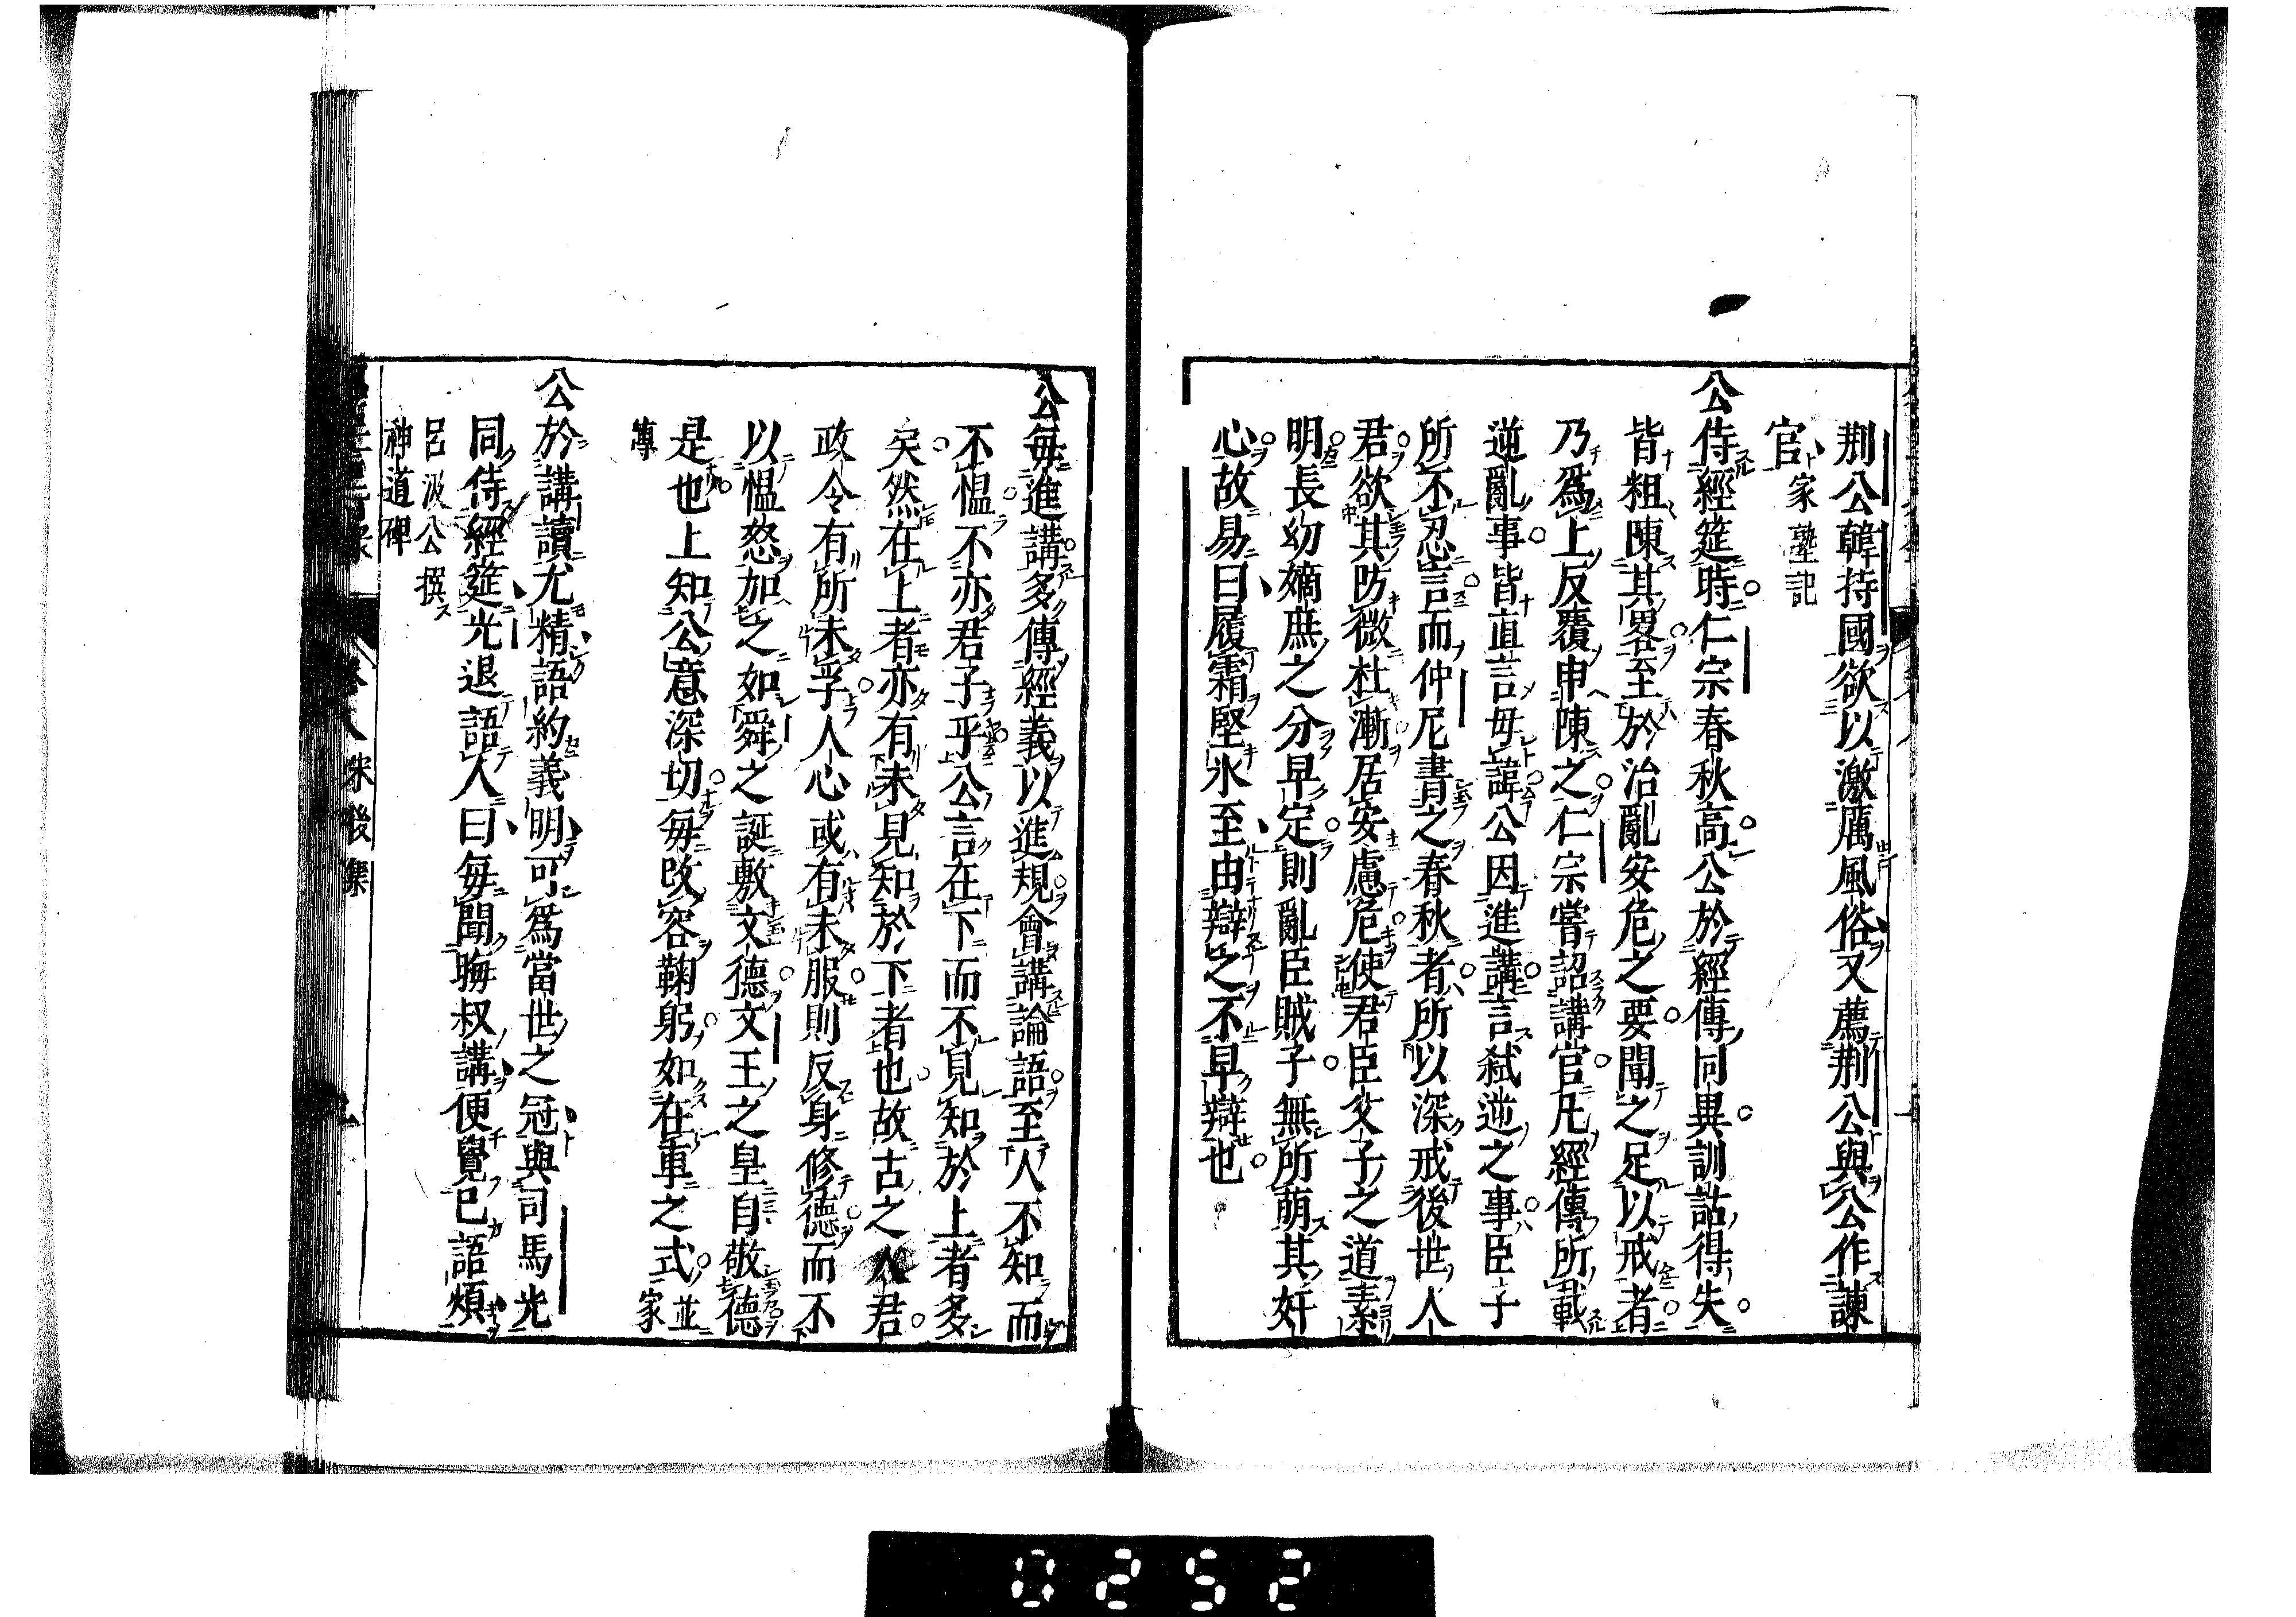 荆公韓持國欲以激厲風俗又薦荆公與公作諫
官家塾記
公侍經筵時仁宗春秋高公於經傳同異訓詁得失
皆粗陳其畧至於治亂安危之要聞之足以戒者
乃爲上反覆申陳之仁宗嘗詔講官凡經傳所載
逆亂事皆直言毋諱公因進講言弑逆之事臣子
所不忍言而仲尼書之春秋者所以深戒後世人
君欲其防微杜漸居安慮危使君臣父子之道素
明長幼嫡庶之分早定則亂臣賊子無所萌其奸
心故易曰履霜堅氷至由辯之不早辯也
公毎進講多傳經義以進規會講論語至人不知而
不愠不亦君子乎公言在下而不見知於上者多
矣然在上者亦有未見知於下者也故古之人君
政令有所未孚人心或有未服則反身修德而不
以愠怒加之如舜之誕敷文德文王之皇自敬德
是也上知公意深切毎改容鞠躬如在車之式並家
傳
公於講讀尤精語約義明可爲當世之冠與司馬光
同侍經筵光退語人曰毎聞晦叔講便覺已語煩
呂汲公撰
神道碑
卷八 朱後集
0252